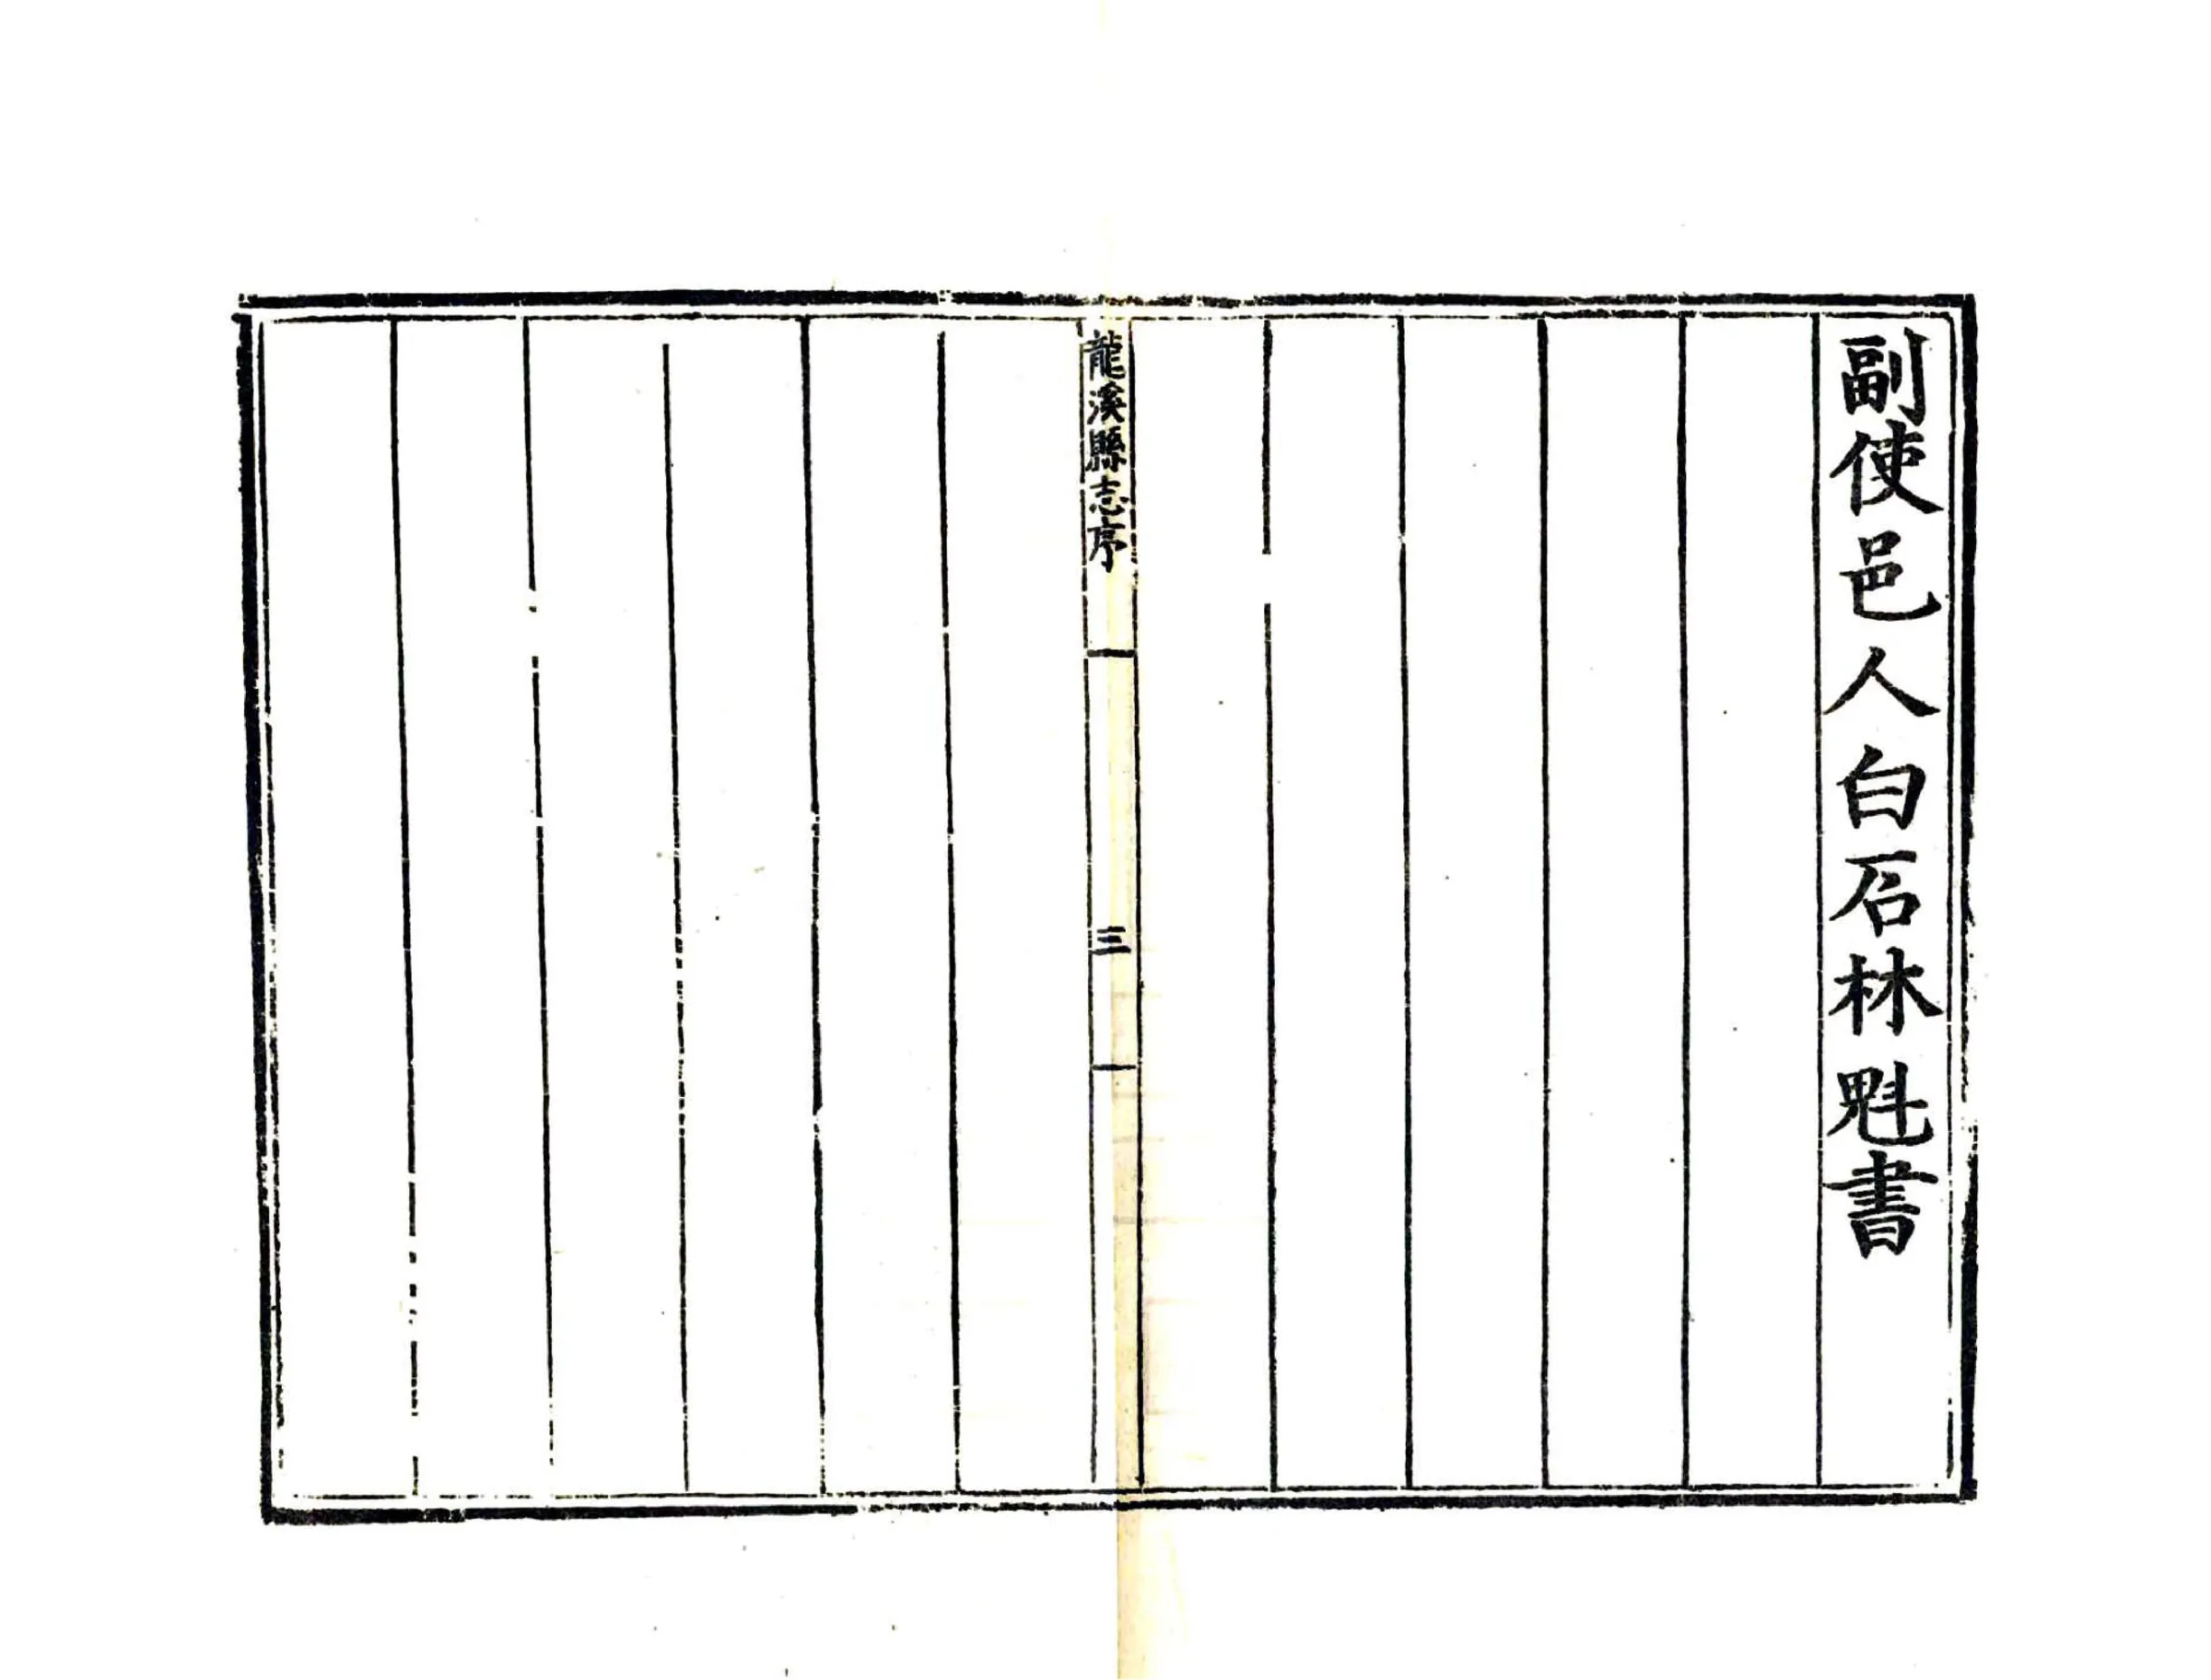 副使邑人白石林魁書
龍溪縣志序
三